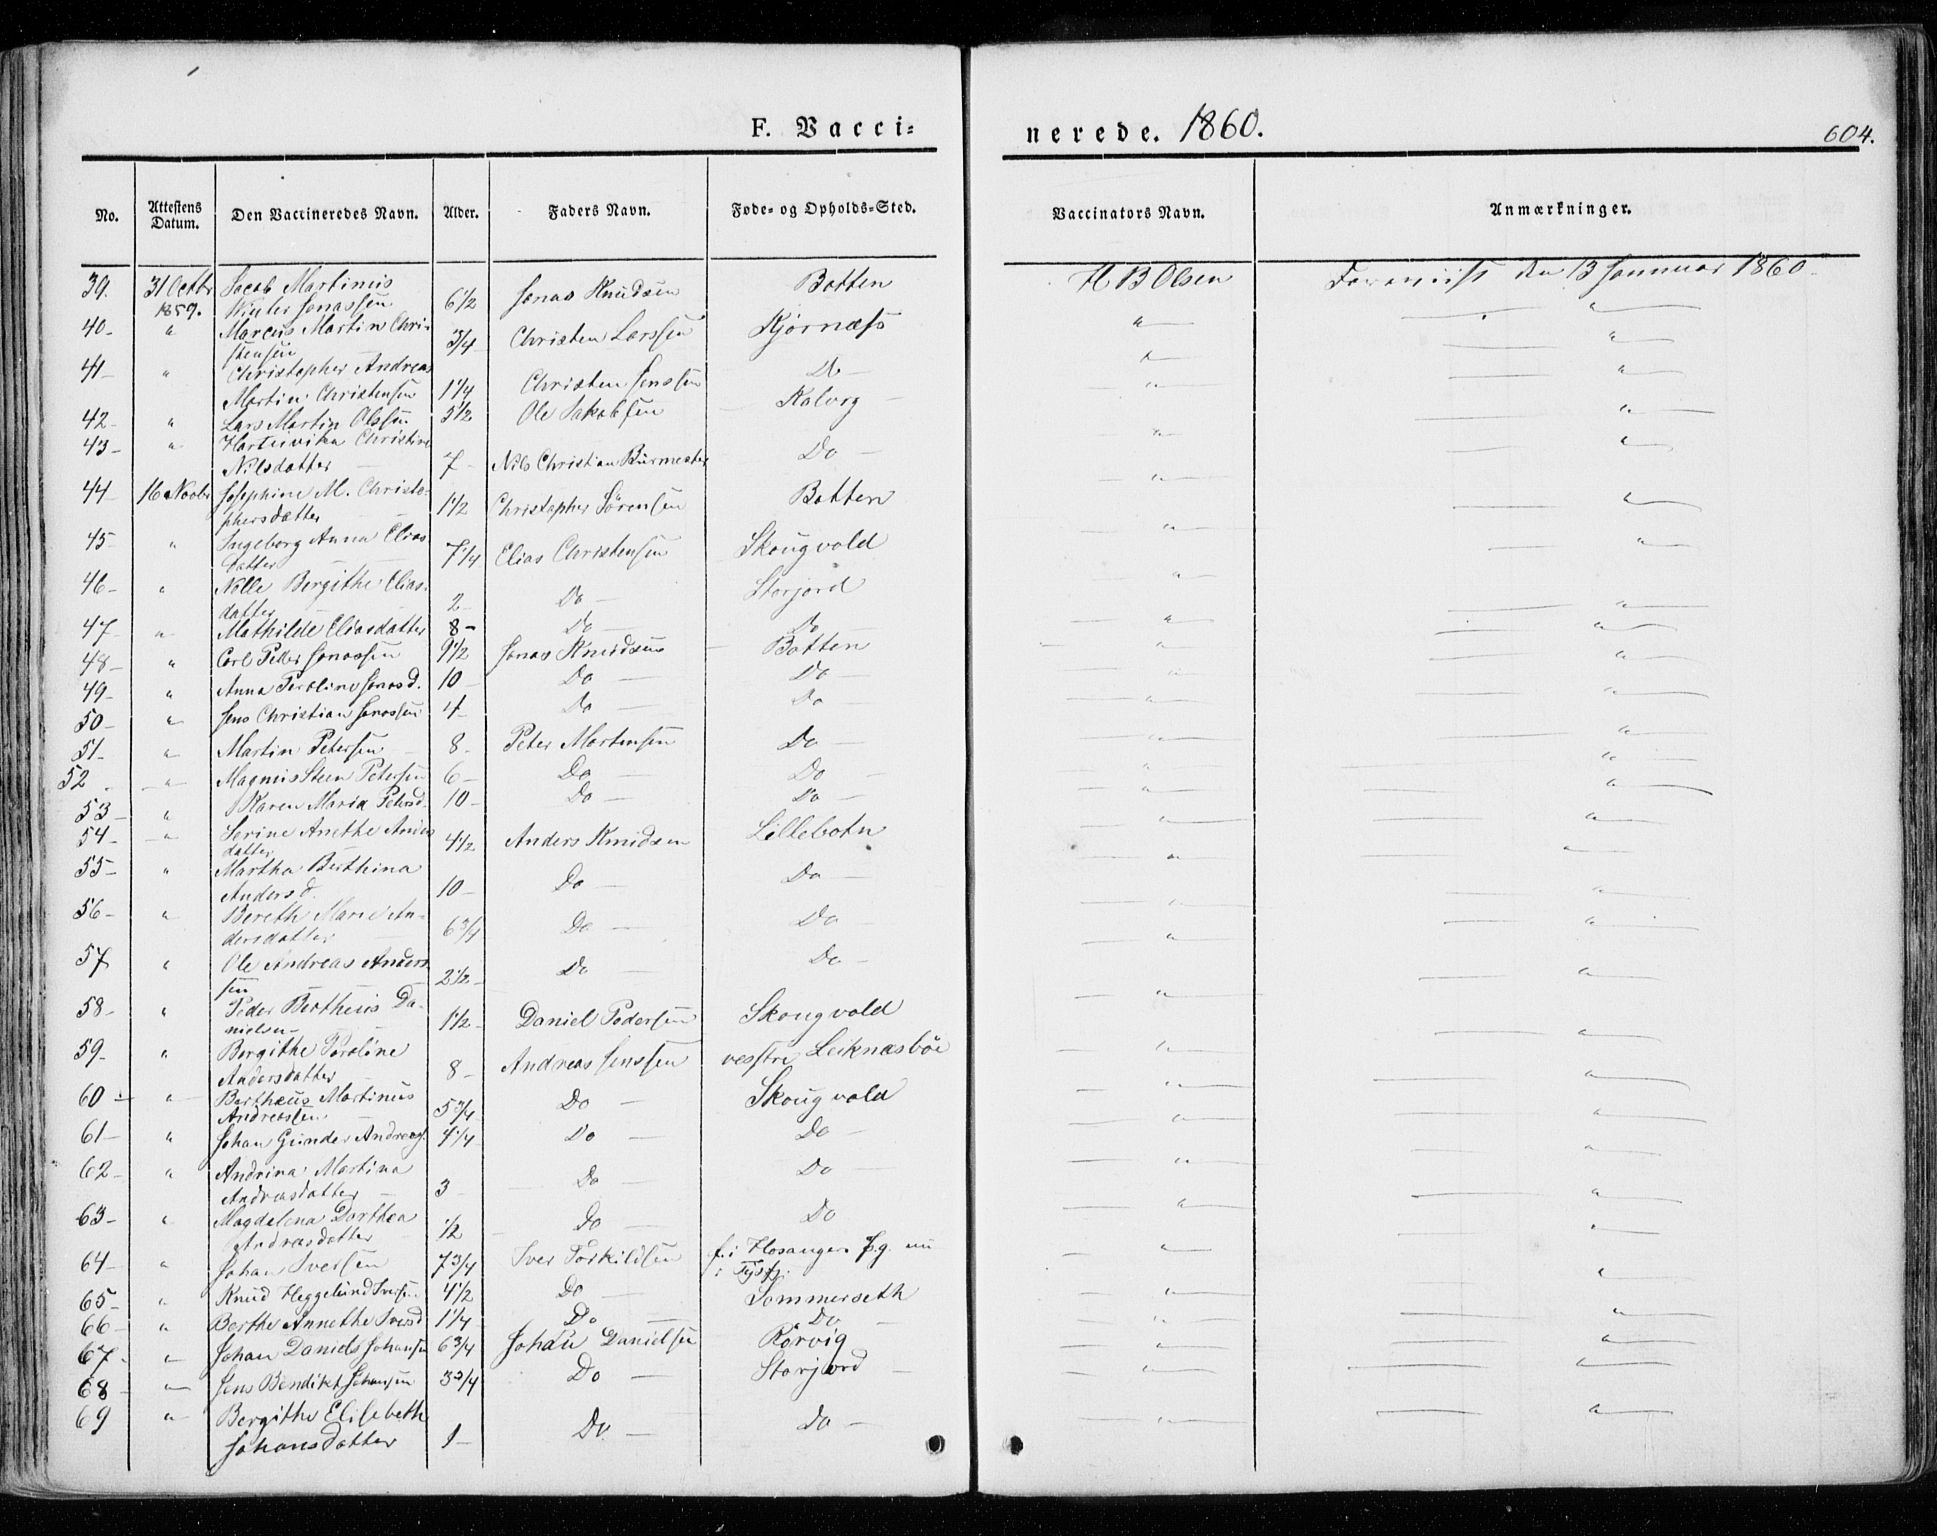 F. Vacci=
nerede. 1860.
604.
No. Attestens Datum. Den Vaccineredes Navn. Alder. Faders Navn. Føde- og Opholds-Sted. Vaccinators Navn. Anmærkninger.
39. 31 Octbr 1859. Jacob Martinus Winter Jonassen 6 1/2 Jonas Knudsen Botten H B Olsen Foreviist den 13 Januar 1860.
40- " Marcus Martin Christensen 3/4 Christen Larssen Kjørnæss " "
41- " Christopher Andreas Martin Christensen 1 1/4 Christen Jenssen Do " "
42- " Lars Martin Olssen 3 1/2 Ole Jakobsen Kalvog " "
43- " Christine Nilsdatter 7- Nils Christian Burmester Do " "
44 16 Novbr Josephine M. Christophersdatter 1 1/2 Christopher Sörensen Botten " "
45 " Ingeborg Anna Eliasdatter 7 1/4 Elias Christensen Skougvold " "
46- " Nille Bergithe Eliasdatter 2- Do Storjord " "
47 " Mathilde Eliasdatter 8- Do Do " "
48- " Carl Peter Jonassen 9 1/2 Jonas Knudsen Botten " "
49- " Anna Peroline Jonasd. 10- Do Do " "
50- " Jens Christian Jonassen 4- Do Do " "
51- " Martin Petersen 8- Peter Mortensen Do " "
52 " Magnus Steen Petersen 6- Do Do " "
53- " Karen Maria Petersd. 10- Do Do " "
54- " Serine Anethe Andersdatter 4 1/2 Anders Knudsen Lillebotn " "
55- " Martha Berthina Andersd. 10- Do Do " "
56- " Bereth Marie Andersdatter 6 3/4 Do Do " "
57 " Ole Andreas Anderssen 2 1/2 Do Do " "
58- " Peder Bertheus Danielsen 1 1/2 Daniel Pedersen Skougvold " "
59- " Bergithe Peroline Andersdatter 8- Andreas Jenssen vestre Leiknæsbøe " "
60- " Bertheus Martinus Andreassen 5 3/4 Do Skougvold " "
61- " Johan Gunder Andreass. 4 1/4 Do Do " "
62- " Andrina Martina Andreasdatter 3 Do Do " "
63- " Magdelena Dorthea Andreasdatter 1/2 Do Do " "
64- " Johan Iversen 7 3/4 Iver Torkildsen f. i Hosanger Pg. nu i Tysfj. " "
65- " Knud Heggelund Iversen 4 1/2 Do Sommerseth " "
66- " Berthe Annethe Iversd 1 1/4 Do Do " "
67- " Johan Daniels Johansen 6 3/4 Johan Danielsen Rørvig " "
68- " Jens Bendikt Johansen 3 3/4 Do Storjord " "
69 " Bergithe Elisebeth Johansdatter 1- Do Do " "